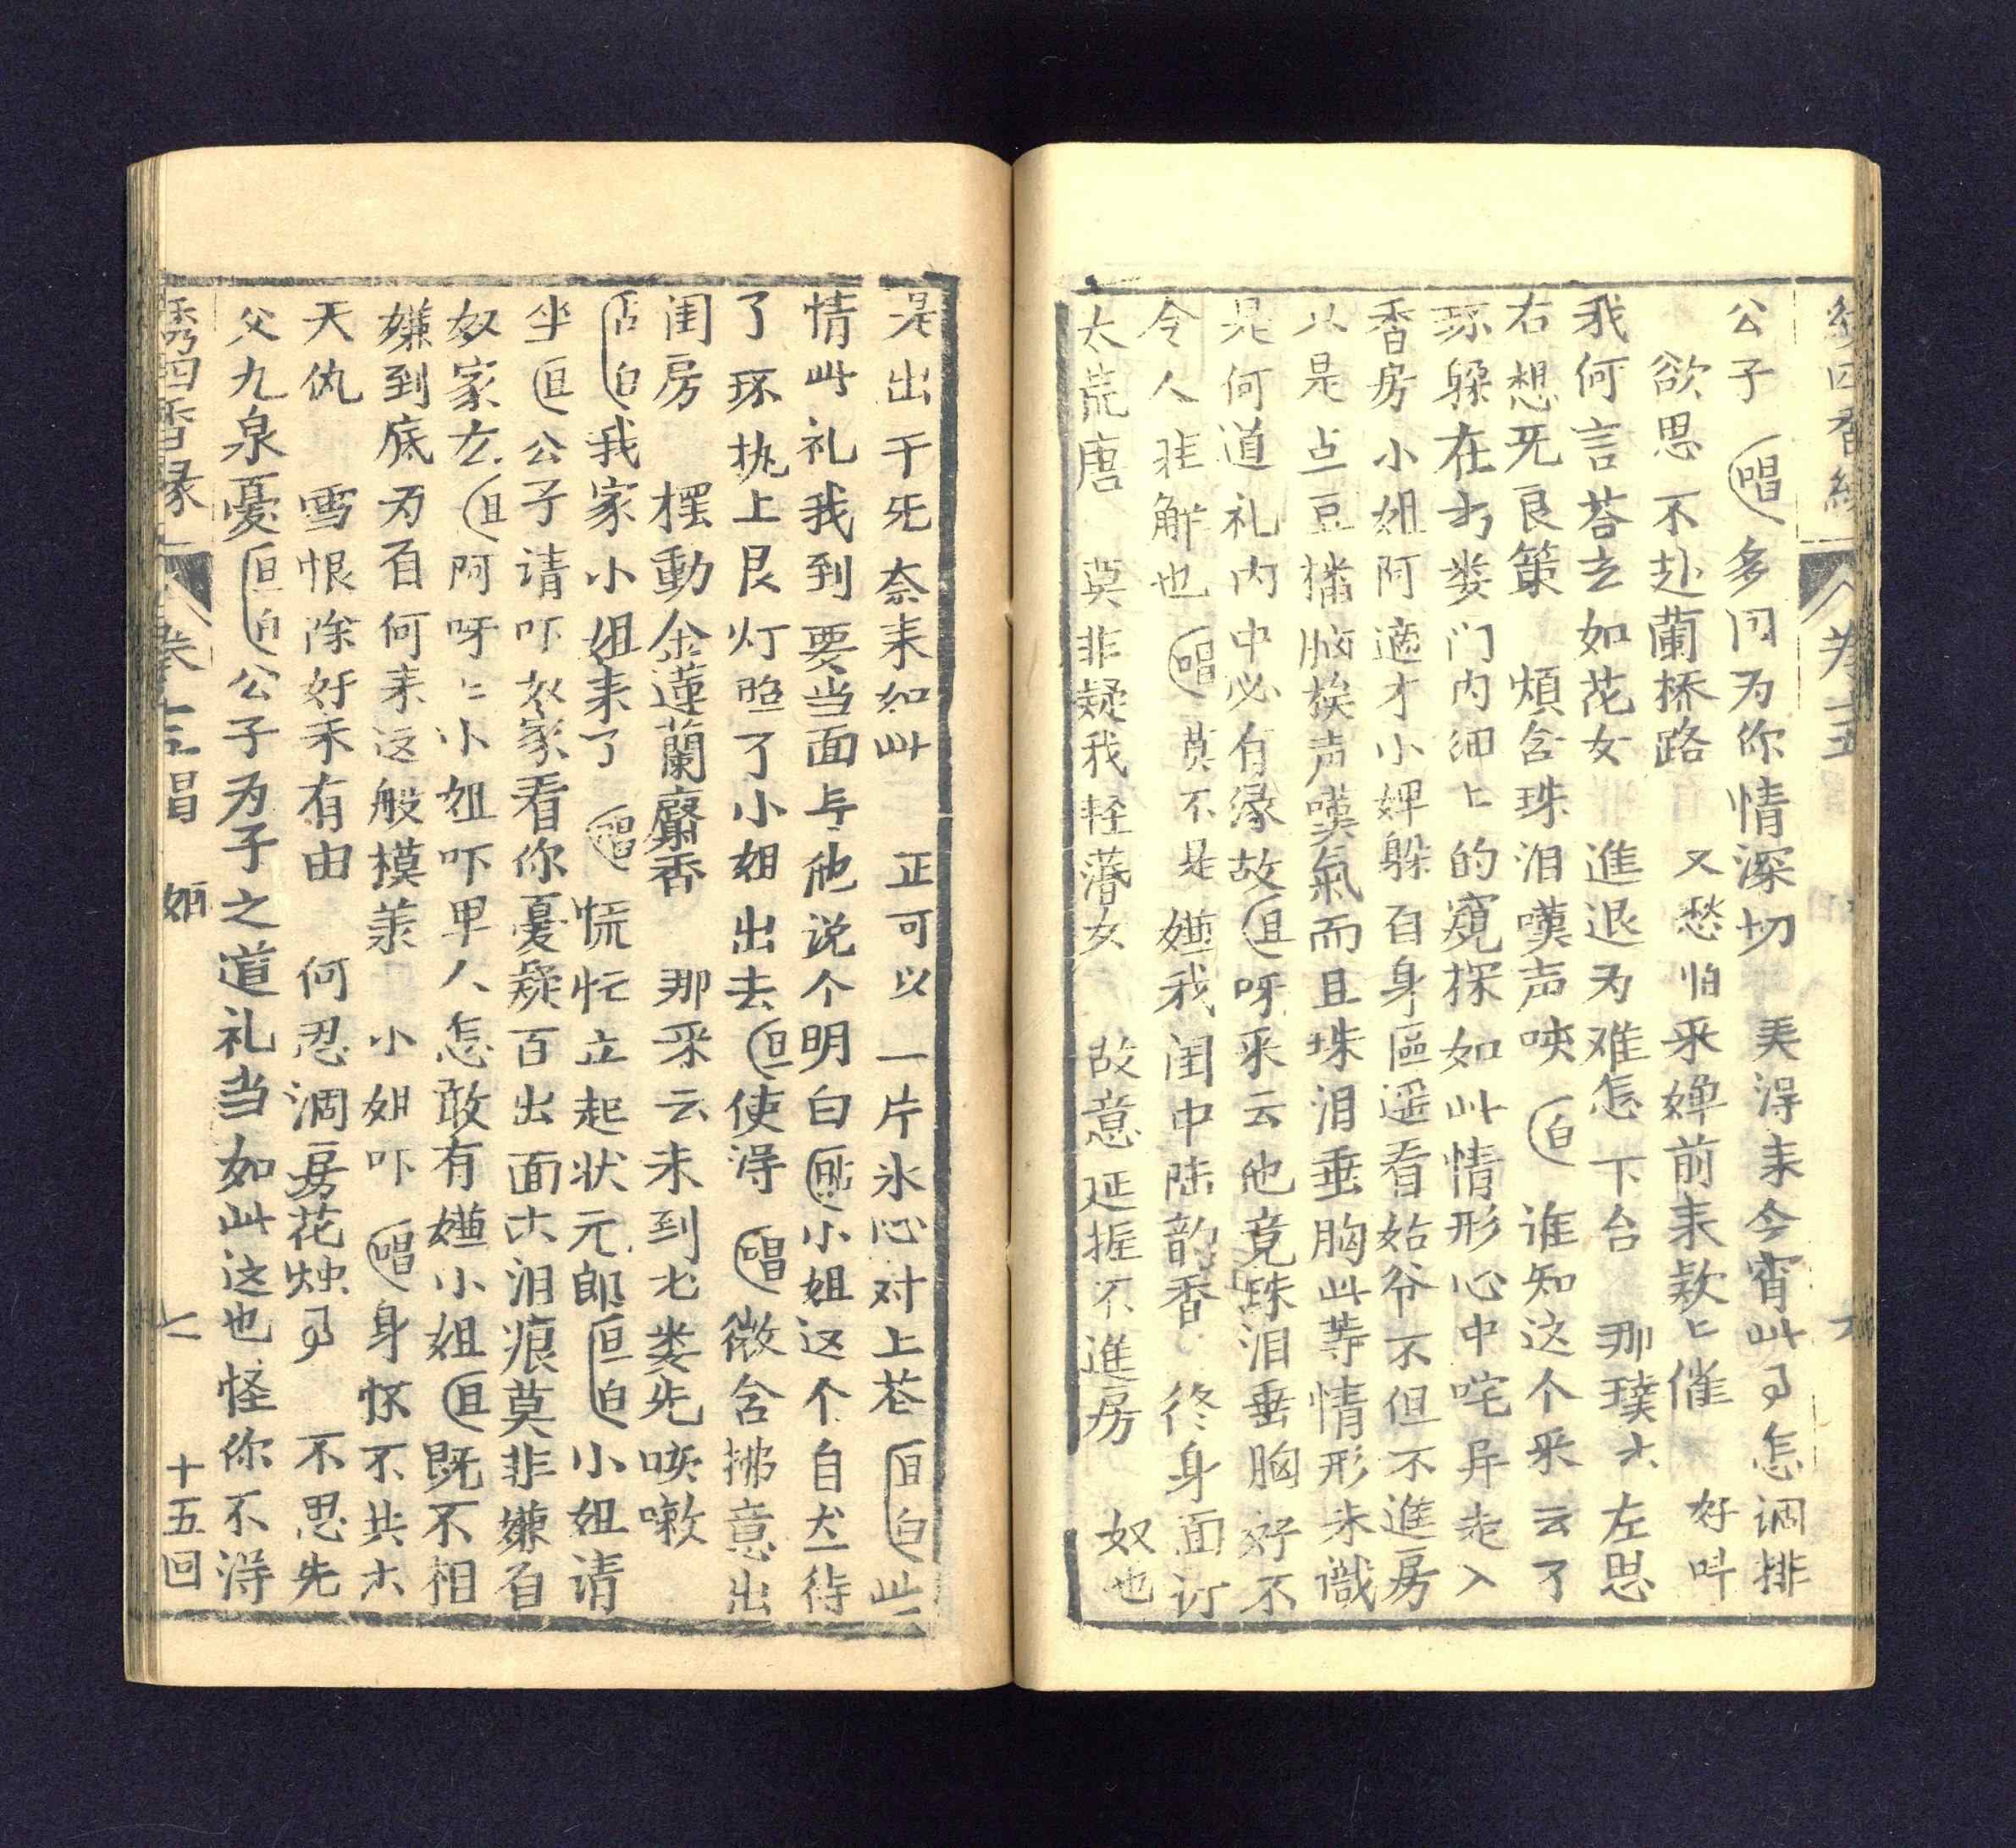 公子唱多冈为你情深切 美淂耒今宵此𠄏怎调排
欲思不赴蘭桥路 又愁怕采婵前耒欵〻催 好呌
我何言荅玄如花女 進退为难怎下台 那璞六左思
右想旡良策 煩含珠泪嘆声唊白谁知这个采云了
环躱在娄门内细〻的窺探如此情形心中咤异走入
香房小姐阿適才小婢躲自身區遥看姑爷不但不進房
以是点豆搐脑挨声嘆氣而且珠泪垂胸此等情形未識
是何道礼内中必有缘故旦呀采云他竟珠泪垂胸好不
令人非解也唱莫不是嫌我闺中陆韵香 终身面订
太荒唐 莫非疑我轻薄女 故意延捱不進房 奴也
绣四香缘 卷十五 六
是出于旡奈耒如此 正可以一片氷心对上苍旦白此
情此礼我到要当面与他说个明白占小姐这个自然待
了环执上艮灯照了小姐出去旦使淂唱微含拂意出
闺房 摆動金蓮蘭麝香 那采云未到七娄先咳嗽
占白我家小姐耒了唱慌忙立起状元郎旦白小姐请
坐旦公子请吓奴家看你憂疑百出面六泪痕莫非嫌自
奴家玄旦阿呀〻小姐吓甲人怎敢有嫌小姐旦既不相
嫌到底为自何耒这般摸羕 小姐吓唱身怀不共六
天仇 雪恨除奸未有由 何忍洞房花烛𠄏 不思先
父九泉憂旦白公子为子之道礼当如此这也怪你不淂
绣四香缘 卷十五昌 姤 七 十五回